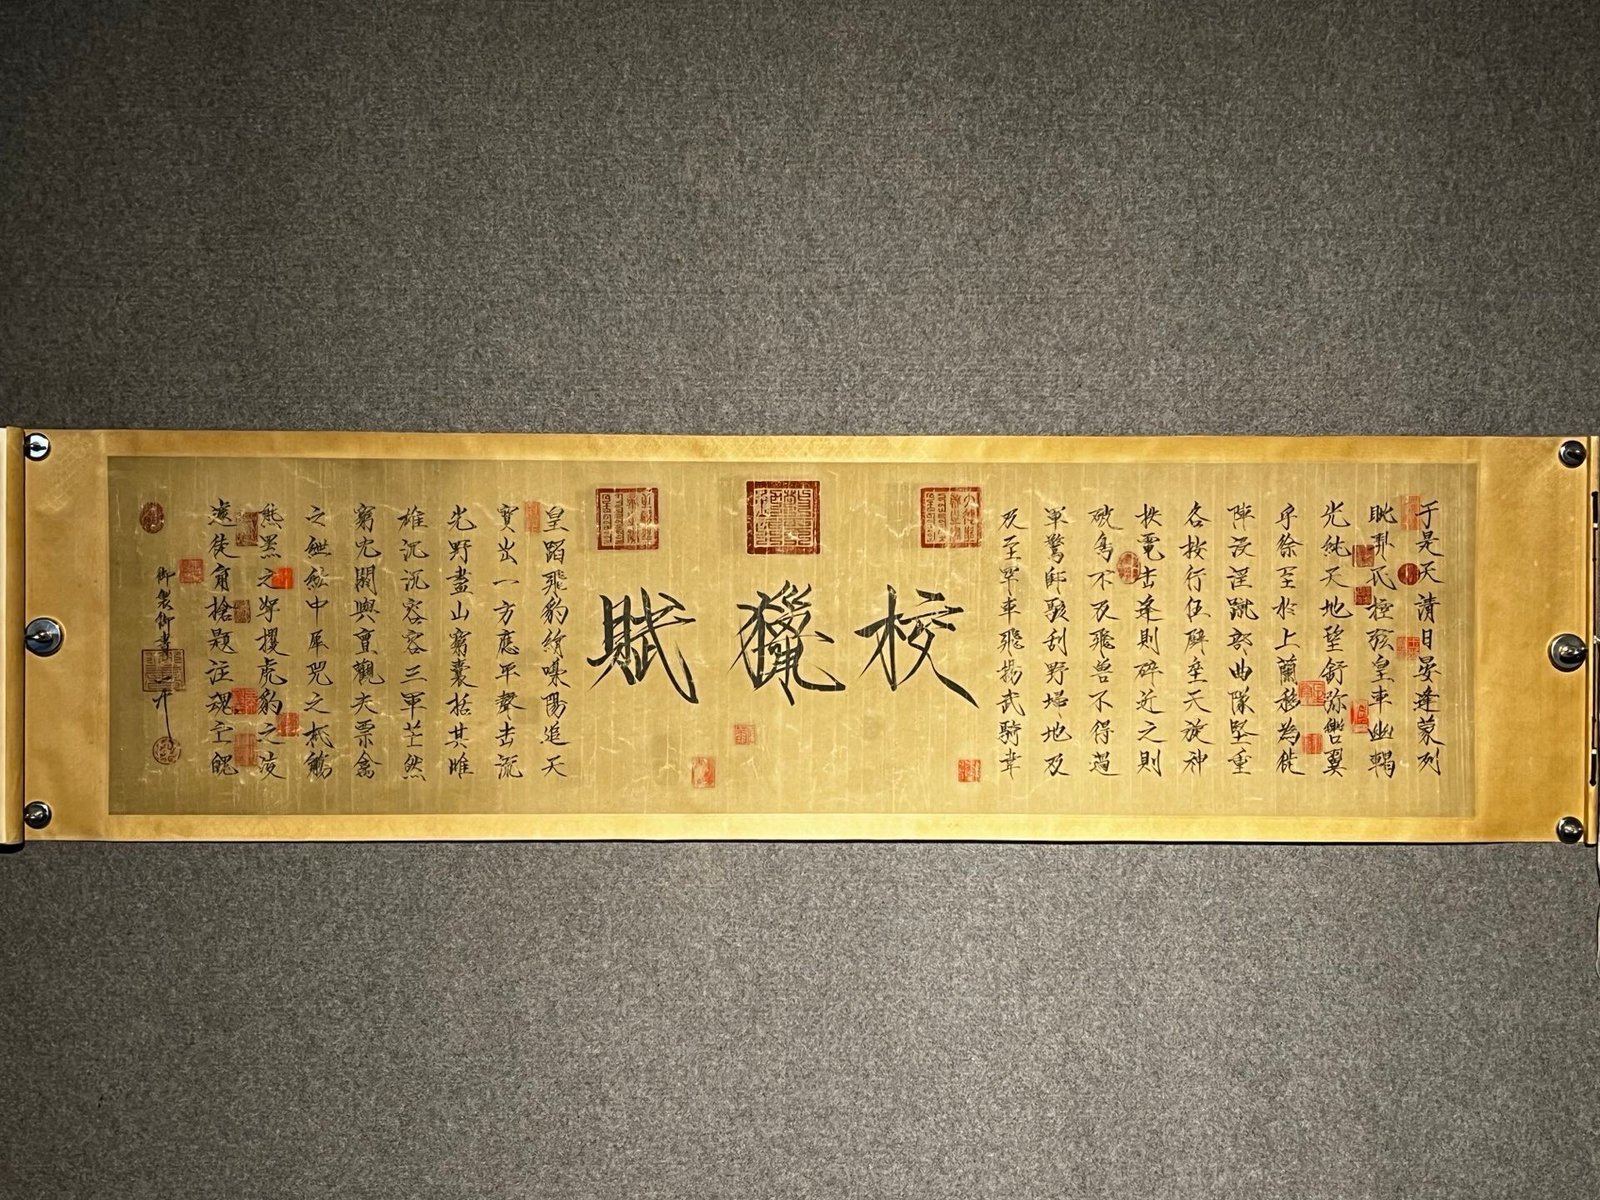 于是天清日晏逢蒙列
眦羿氏控弦皇車幽輵
光純天地望舒弥轡翼
乎徐至於上蘭移為徙
陣浸淫蹴部曲隊堅重
各按行伍辟垒天旋神
抶電击逢則碎近之則
破鳥不及飛兽不得過
軍驚師駭刮野埽地及
及至罕車飛揚武騎聿
校獵賦
皇蹈飛豹絹噪陽追天
寳出一方應平聲击流
光野盡山窮囊括其雌
雄沉沉容容三軍芒然
窮冘閼與亶觀夫票禽
之紲紭中犀兕之抵觸
熊羆之挐攫虎豹之凌
遽徒角槍題注魂亡魄
御製御書